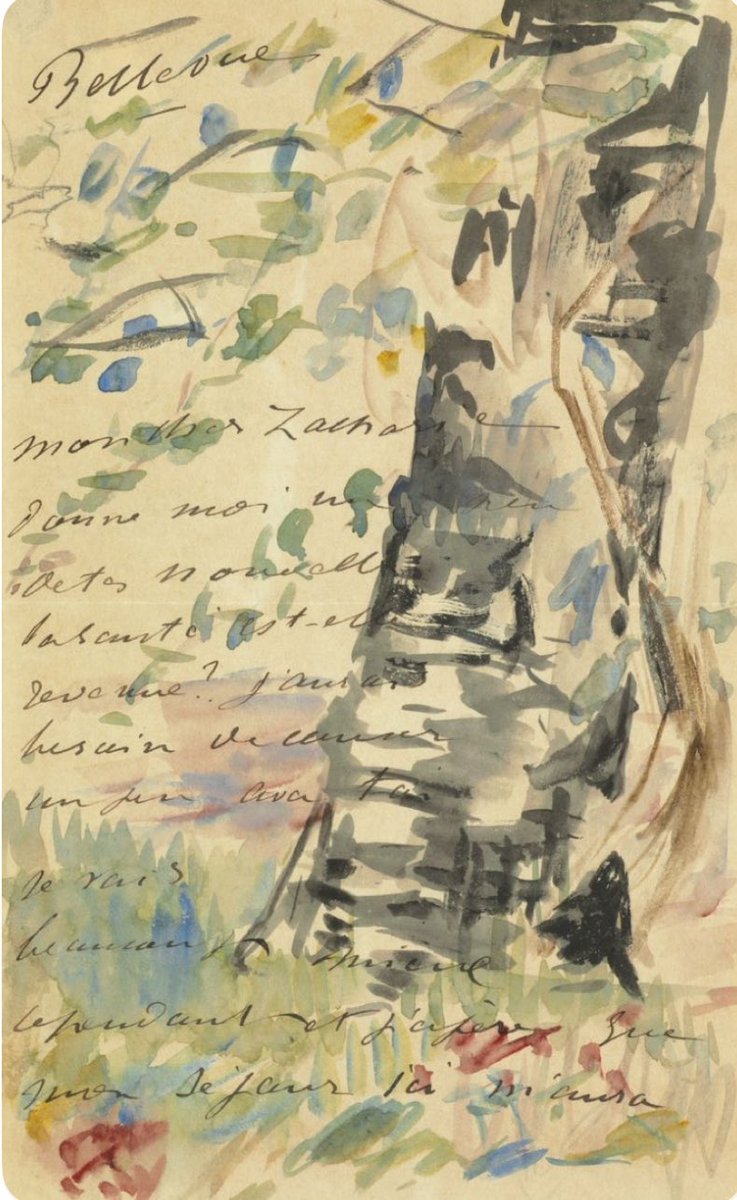 Bellevue
mon cher Zacharie
donne moi un peu
de tes nouvelles
ta santé est-elle
revenue? j'aurais
besoin de causer
un peu avec toi
Je vais
beaucoup mieux
cependant et j'espère que
mon séjour ici m'aura